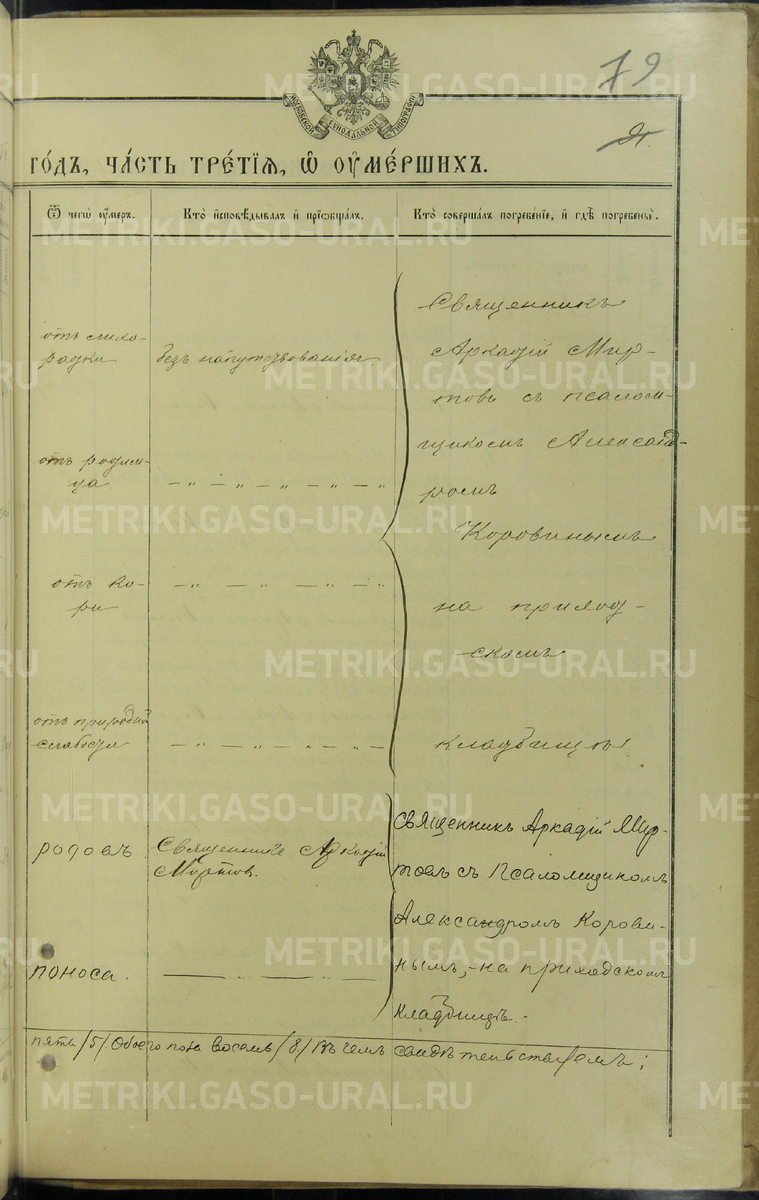 79
МОСКОВСКОЙ СѴНОДАЛЬНОЙ ТИПОГРАФІИ
ГОДЪ, ЧАСТЬ ТРЕТІЯ, Ѡ ОУМЕРШИХЪ.
Ѿ чегѡ оумеръ.
Кто исповѣдывалъ и пріобщалъ.
Кто совершалъ погребеніе, и гдѣ погребены.
отъ лихо-
радки
безъ напутствованія
Священникъ
Аркадій Мир-
товъ съ псалом-
щикомъ Александ-
ромъ
Коровинымъ
на приход-
скомъ
кладбищѣ
отъ родим-
ца
— „ — „ — „ — „ — „
отъ ко-
ри
— „ — „ — „ — „
отъ природной
слабости
— „ — „ — „ — „ —
родовъ
Священникъ Аркадій
Миртов.
Священникъ Аркадій Мир-
товъ съ Псаломщикомъ
Александромъ Корови-
нымъ, - на приходскомъ
кладбищѣ. -
поноса.
— „ — „ —
пять /5/. Обоего пола восемь /8/. Въ чемъ свидѣтельствуемъ:
METRIKI.GASO-URAL.RU